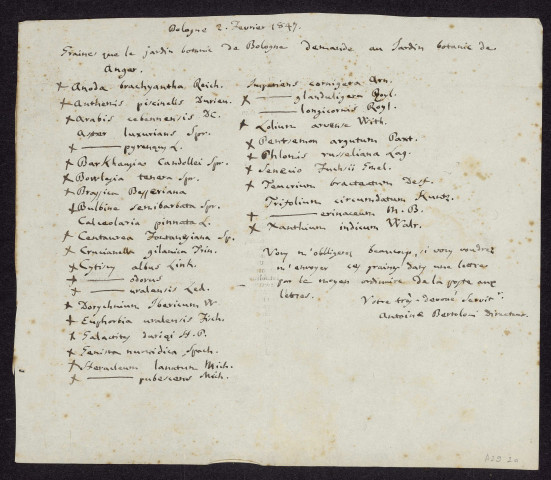 Bologne 2. Fevrier 1847.
Graines que le jardin botanic de Bologne demande au Jardin botanic de
Anger.
+ Anoda brachyantha Reich.
+ Anthemis piscinalis Durieu.
+ Arabis cebennensis DC.
Aster luxurians Spr.
+ —— pyrenæus L.
+ Barkhausia Candollei Spr.
+ Bowlesia tenera Spr.
+ Brassica Besseriana
+ Bulbine semibarbata Spr.
Calceolaria pinnata L.
+ Centaurea Fontanesiana Sp.
+ Crucianella gilanica Trin.
+ Cytisus albus Link.
+ —— odorus
+ —— uralensis Led.
+ Dorychnium Ibericum W.
+ Euphorbia uralensis Fisch.
+ Galactites duriaei H.P.
+ Genista numidica Spach.
+ Heracleum lanatum Mich.
+ —— pubescens Mich.
Impatiens cornigera Arn.
+ —— glanduligera Royl.
—— longicornis Royl.
+ Lolium arvense With.
+ Pentsemon argutum Paxt.
+ Phlomis russeliana Lag.
+ Senecio Fuchsii Gmel.
+ Teucrium bracteatum Desf.
Trifolium circumdatum Kuntz.
+ —— erinaceum M.B.
+ Xanthium indicum Wallr.
Vous m'obligerez beaucoup, si vous voudrez
m'envoyer ces graines dans une lettre
par le moyen ordinaire de la poste aux
lettres.
Votre très-devoué Servitr.
Antoine Bertoloni Directeur.